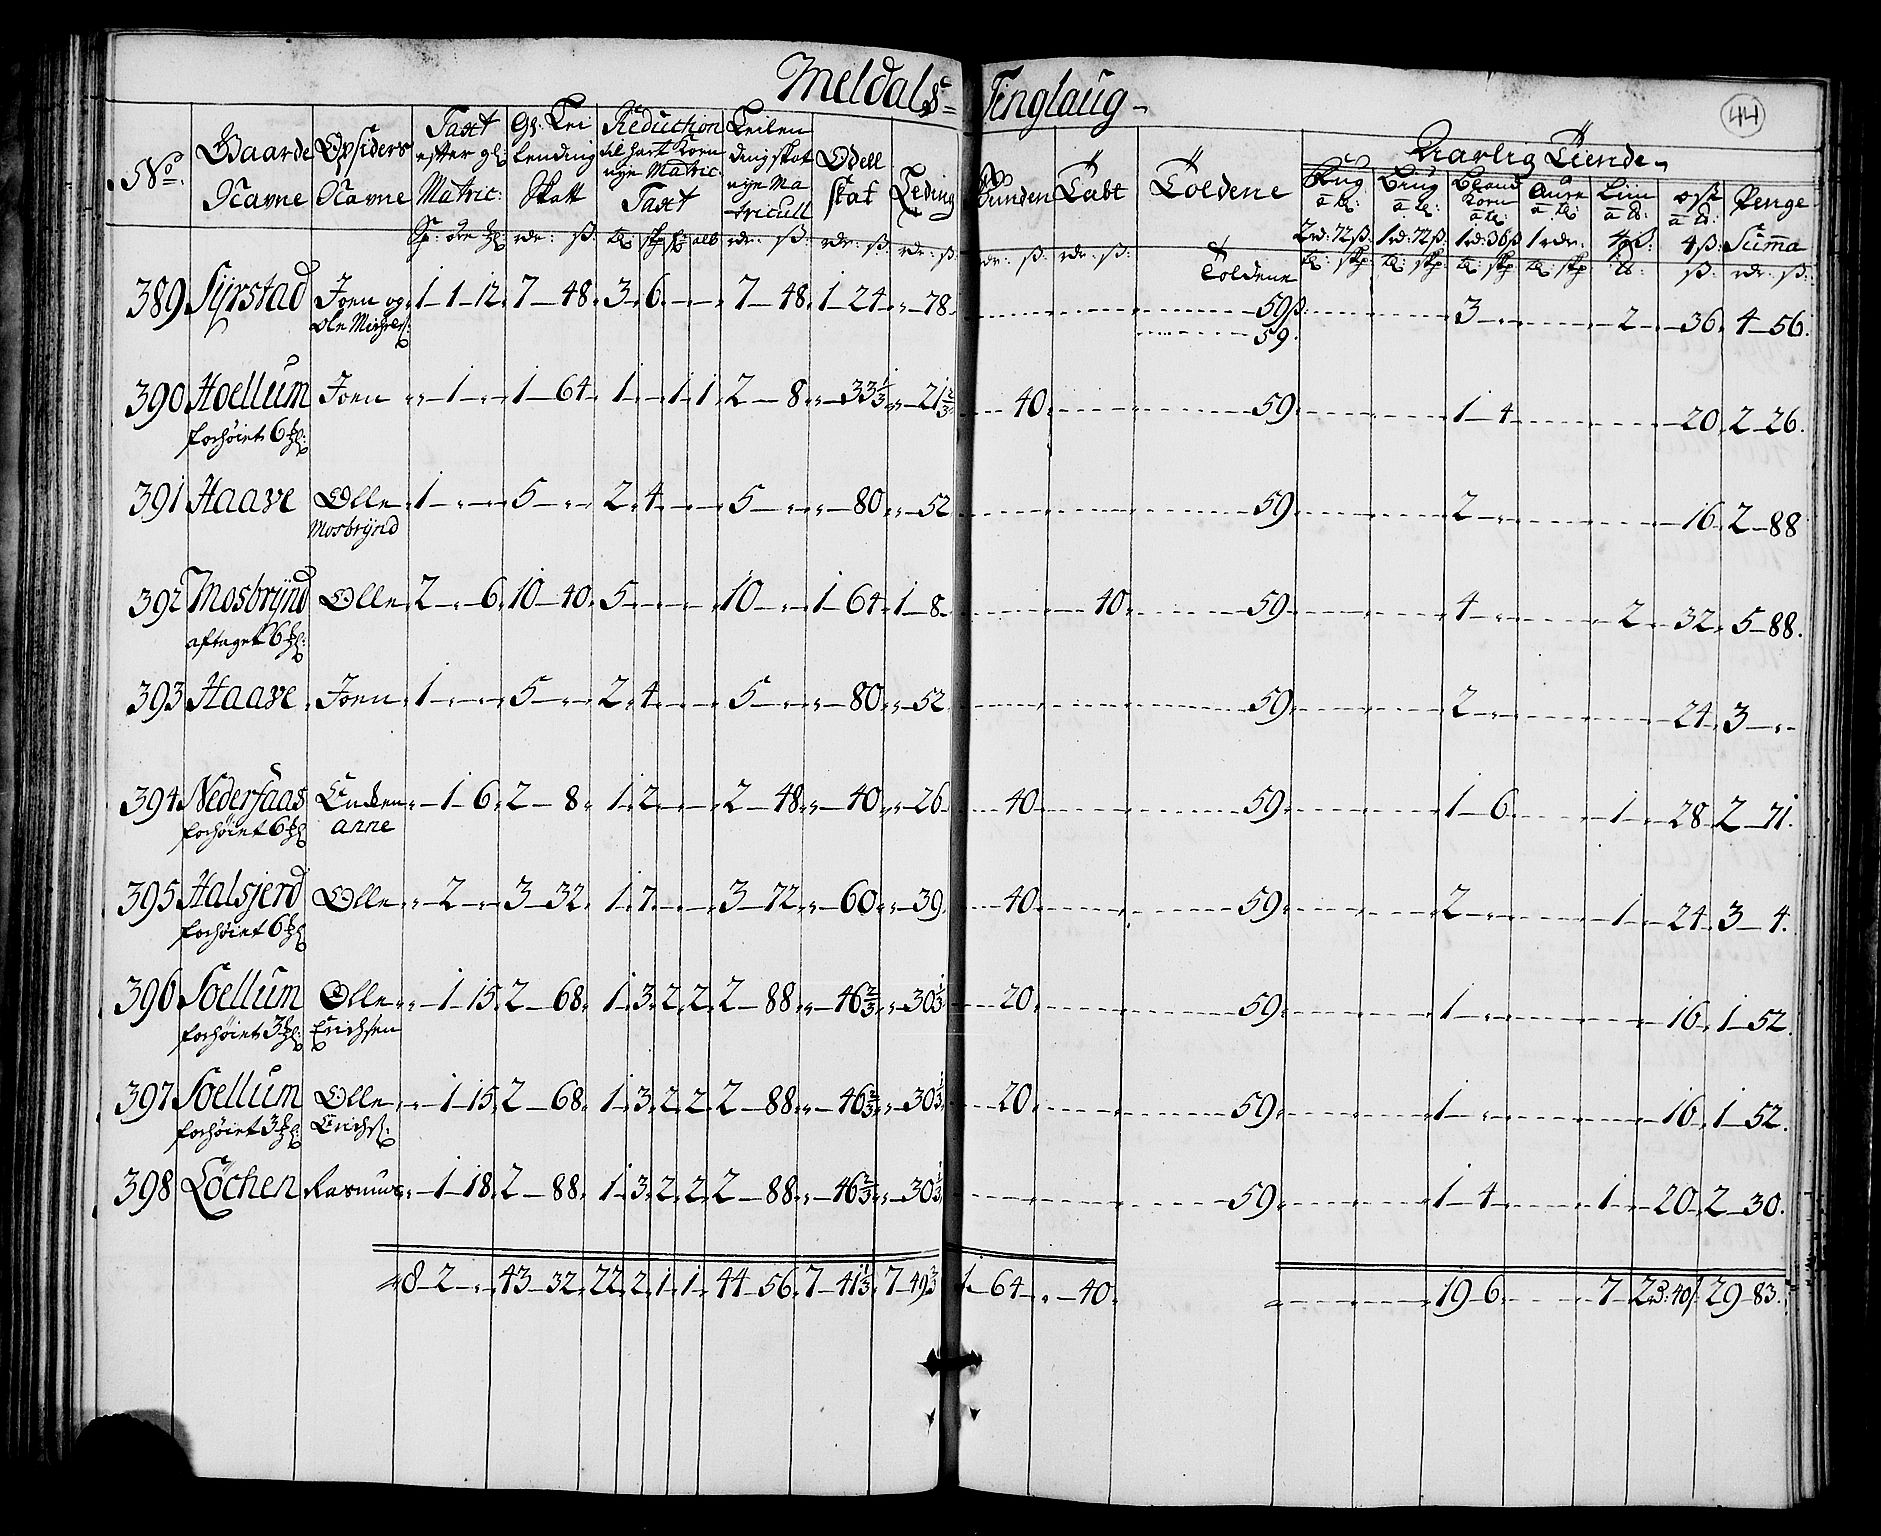 Meldals= Tinglaug-
44
No. Gaarde Navne Opsiders Navne Taxt effter gl: Matric: Gl: Leilending Skatt Reduction til hart Korn nye Matric: Taxt Leilendingskat nye Matricull Odell skat Leding Tabt Toldene Aarlig Tiende
Rug Biug Bland Korn Aure Liin Ost Penge
2rd:72ß: 1rd:72ß. 1rd:36ß 1rdr. 4ß: 4ß: Summa
389 Syrstad Joen og 1 1 12 7 48 3 6 7 48 1 24 78 59ß 3 2 36 4 56
59
390 Hoellum Joen 1 1 64 1 1 1 2 8 33 1/3 21 2/3 40 59 1 4 20 2 26
forhöiet 6
391 Haave Olle 1 5 2 4 5 80 52 59 2 16 2 88
Mosbrÿnd
392 Mosbrÿnd Olle 2 6 10 40 5 10 1 64 1 8 40 59 4 2 32 5 88
aftaget 6
393 Haave Joen 1 5 2 4 5 80 52 59 2 24 3
394 Nedersaas Encken 1 6 2 8 1 2 2 48 40 26 40 59 1 6 1 28 2 71
forhöiet 6 anne
395 Halsjerd Olle 2 3 32 1 7 3 72 60 39 40 59 2 1 24 3 4
forhöiet 6
396 Soellum Olle 1 15 2 68 1 3 2 2 2 88 46 2/3 30 1/3 20 59 1 16 1 52
forhöiet 3 Erichsen
397 Soellum Olle 1 15 2 68 1 3 2 2 2 88 46 2/3 30 1/3 20 59 1 16 1 52
forhöiet 3 Erichs:
398 Löchen Rasmus 1 18 2 88 1 3 2 2 2 88 46 2/3 30 1/3 59 1 4 1 20 2 30
8 2 43 32 22 2 1 1 44 56 7 41 1/3 7 49 1 64 40 19 6 7 29 83